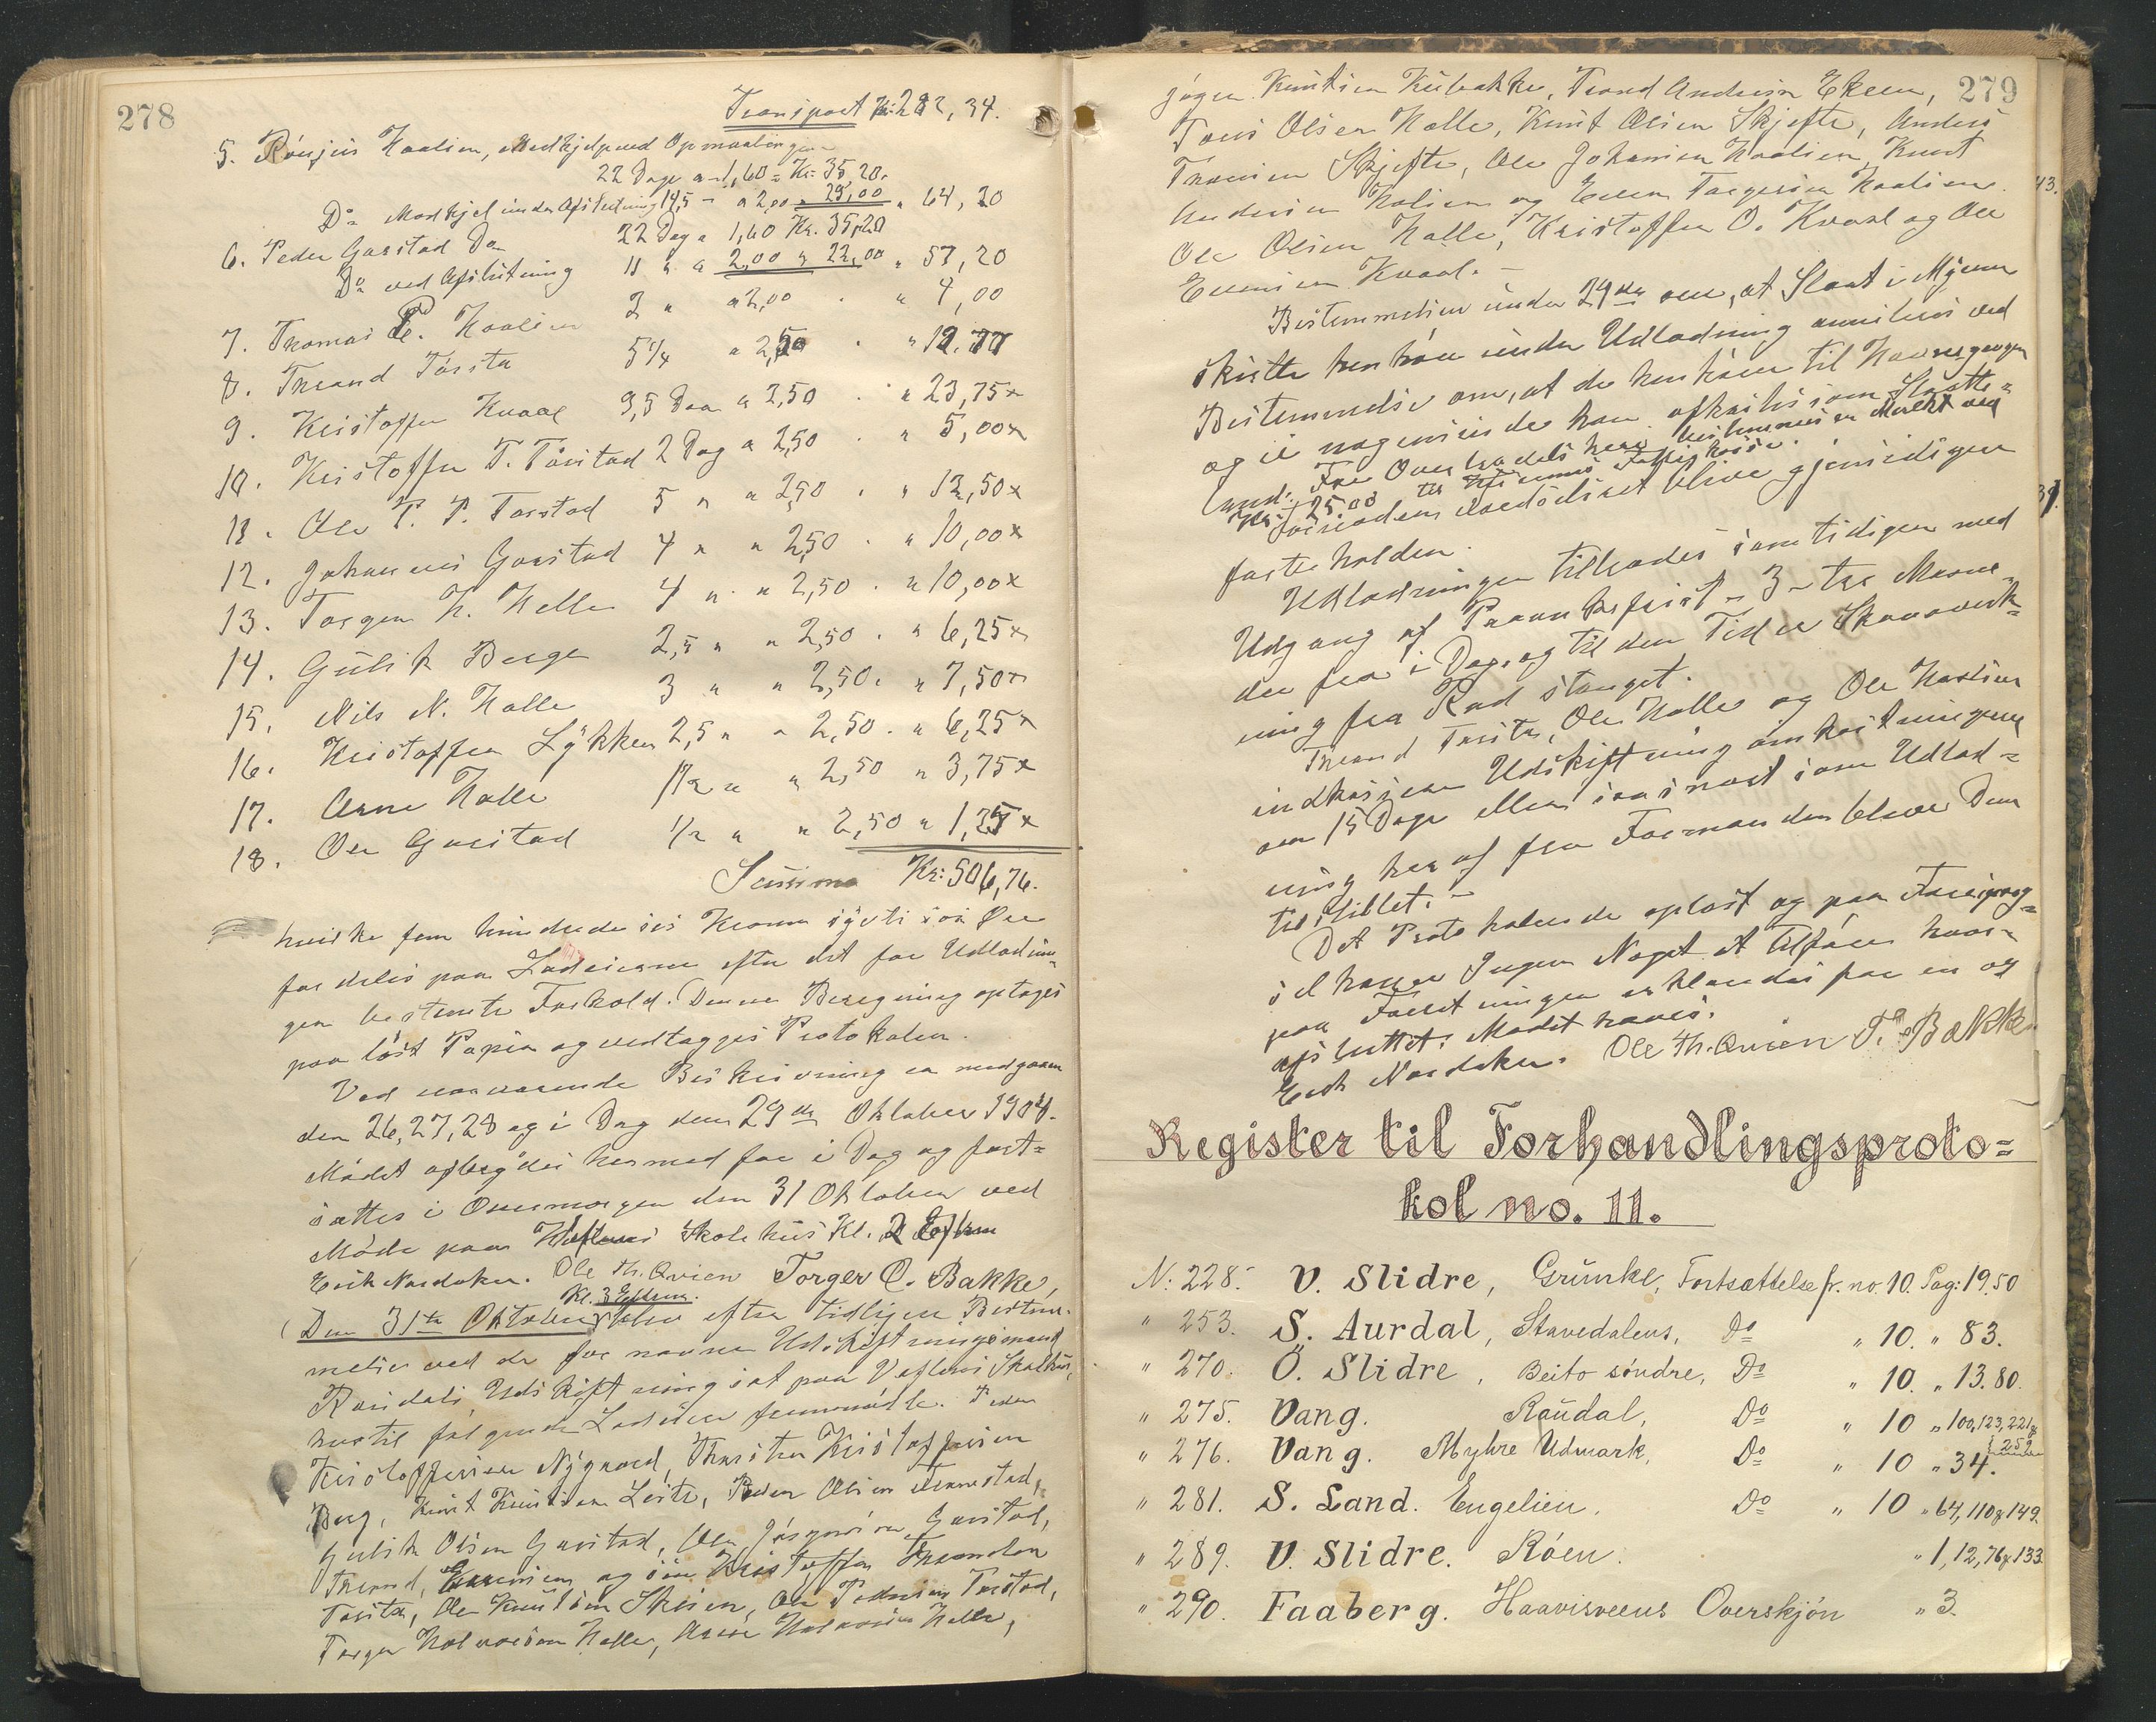 278
Transport Kr: 282,34.
5. Haalien, Medhjelp ved Opmaalingen
22 Dage a 1,60 = Kr. 35,20.
Do Medhjel under Afslutning 14,5 - a 2,00 " 29,00 " 64,20
6. Peder Garstad Do 22 Dag a 1,60 Kr. 35,20
Do ved Afslutning 11 " a 2,00 " 22,00 " 57,20
7. Thomas P. Haalien 2 " a 2,00 . " 4,00
8. Trond Torsta 5 1/4 a 2,50 . " 12.77
9. Kristoffer Kvaal 9,5 Dag a 2,50 . " 23,75 x
10. Kristoffer T. Tørstad 2 Dag a 2,50 . " 5,00 x
11. Ole P. P. Tørstad 5 " a 2,50 . " 12,50 x
12. Johannes Garstad 4 " " 2,50 . " 10,00 x
13. Torger H. Helle 4 " " 2,50 . " 10,00 x
14. Gulik Berge 2,5 " " 2,50 . " 6,25 x
15. Nils N. Halle 3 " " 2,50 . " 7,50 x
16. Kristoffer Lykken 2,5 " " 2,50 . " 6,25 x
17. Arne Halle 1 1/2 " " 2,50 " 3,75 x
18. Ole Garstad 1/2 " " 2,50 " 1,25 x
Summa Kr: 506,76.
hvilke fem hundrede sex Kroner sytti sex Øre
fordeles paa Lodeierne efter det for Udlodnin-
gen bestemte Forhold. Denne Beregning optages
paa løst Papir og vedlægges Protokolen.
Ved nærværende Beskrivning er medgaaet
den 26, 27, 28 og i Dag den 29de Oktober 1904.
Mødet afbrydes hermed for i Dag og fort-
sættes i Overmorgen den 31 Oktober ved
Møde paa Skolehus Kl. 2 Efterm
Erik Nordaker. Ole Th. Qvien Torger O. Bakke,
Kl. 3 Efterm.
Den 31te Oktober blev efter tidligere Bestem-
melse ved de før nævnte Udskiftningsmænd
Udskiftning sat paa Skolehus,
hvortil følgende Lodeiere fremmødte. Peder
Kristoffersen Nygaard, Thorsten Kristoffersen
Berg, Knut Knutsen Leite, Peder Olsen
Gulik Olsen Garstad, Ole Garstad,
Trond, og søn Kristoffer Tronsen
Torsta, Ole Knutsen Ole Pedersen Torstad,
Torger Halvorsen Halle, Arne Halvorsen Helle,
279
Knutsen Kubakke, Trond Andersen Ekern,
Tønis Olsen Halle, Knut Olsen Skjefte, Anders
Tronsen Skjefte, Ole Johansen Haalien, Knut
Andersen Halien og Even Torgersen Haalien.
Ole Olsen Halle, Kristoffer O. Kvaal og Ole
Evensen Kvaal. -
Bestemmelsen under 29de om, at Slaat i Myren
skulle henhøre under Udlodning annuleres ved
Bestemmelse om, at de henhører til Havnegangen
og ei nogensinde kan opkastes som Slaatte-
land. For Overtrædelse heraf bestemmes en Mulkt ved
Kr: 25.00 til Kommunens Fattigkasse.
bliver gjensidigen
fasteholden.
Udlodningen tiltrædes samtidigen med
Udgang af Paaankefrist - 3 - tre Maane-
der fra i Dag og til den Tid er Skovvirk-
ning fra Rod stanget.
Trond Torsta, Ole Halle og Ole Haalien
indkasserer Udskiftningsomkostningerne
om 15 Dage eller saasnart som Udlod-
ning heraf fra Formanden bliver Dem
tilstillet. -
Det Protokolerede oplæst og paa Forespørg-
sel havde Ingen Noget at tilføie hvor-
paa Forretningen erklæredes for en og
afsluttet. Mødet hævet.
Erik Nordaker. Ole Th. Qvien T. O. Bakke
43.
Register til Forhandlingsproto=
kol no. 11.
N: 228. V. Slidre, Grunke, Fortsættelse fr. no. 10. Pag: 19.50
" 253. S. Aurdal, Stavedalens, Do " 10. " 83.
" 270. Ö. Slidre, Beito søndre, Do " 10. " 13.80.
" 275. Vang. Raudal, Do " 10 " 100,123,221 &
252
" 276. Vang. Myhre Udmark, Do " 10 " 34.
" 281. S. Land. Engelien. Do " 10 " 64, 110 & 149.
" 289. V. Slidre. Röen. " 1, 12, 76 & 133
" 290. Faaberg. Haavisveens Overskjön " 3.